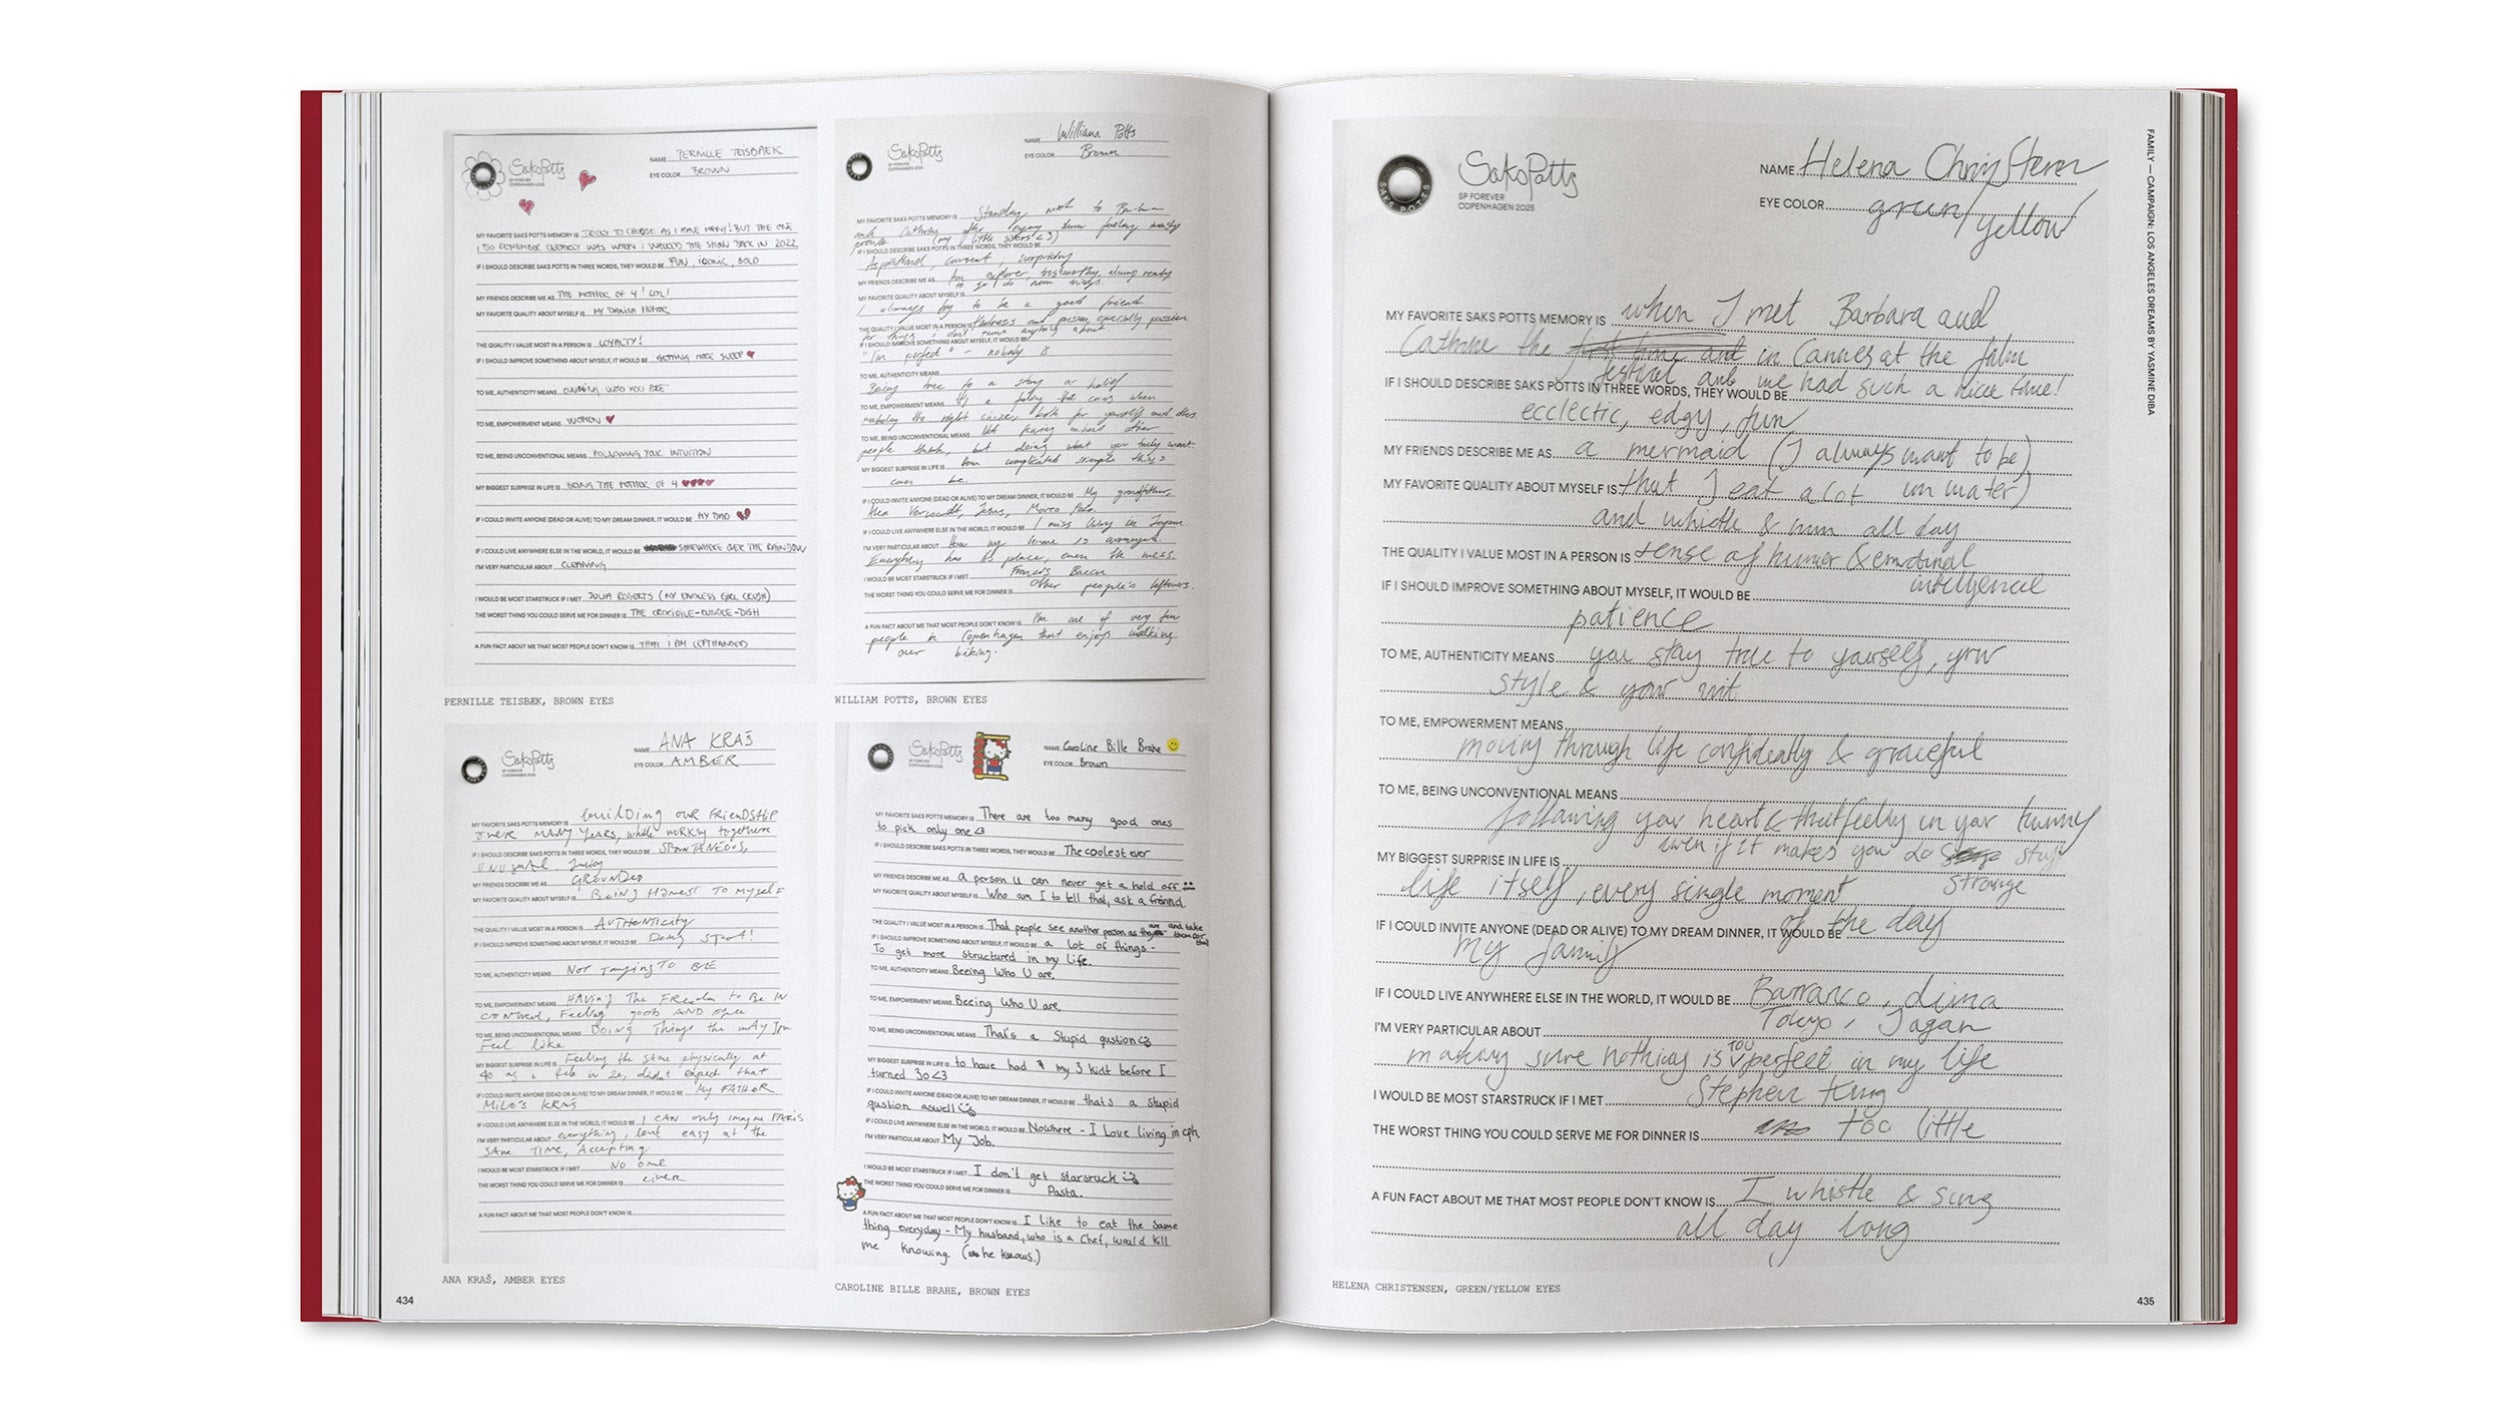 SaksPotts
SP FOREVER
COPENHAGEN 2025
NAME PERNILLE TEISBAEK
EYE COLOR BROWN
MY FAVORITE SAKS POTTS MEMORY IS TRICKY TO CHOOSE AS I HAVE MANY! BUT THE ONE
I DO REMEMBER CLEARLY WAS WHEN I WALKED THE SHOW BACK IN 2022
IF I SHOULD DESCRIBE SAKS POTTS IN THREE WORDS, THEY WOULD BE FUN, ICONIC, BOLD
MY FRIENDS DESCRIBE ME AS THE MOTHER OF 4! LOL!
MY FAVORITE QUALITY ABOUT MYSELF IS MY DANISH HUMOR
THE QUALITY I VALUE MOST IN A PERSON IS LOYALTY!
IF I SHOULD IMPROVE SOMETHING ABOUT MYSELF, IT WOULD BE GETTING MORE SLEEP
TO ME, AUTHENTICITY MEANS OWNING WHO YOU ARE
TO ME, EMPOWERMENT MEANS WOMEN
TO ME, BEING UNCONVENTIONAL MEANS FOLLOWING YOUR INTUITION
MY BIGGEST SURPRISE IN LIFE IS BEING THE MOTHER OF 4
IF I COULD INVITE ANYONE (DEAD OR ALIVE) TO MY DREAM DINNER, IT WOULD BE MY DAD
IF I COULD LIVE ANYWHERE ELSE IN THE WORLD, IT WOULD BE SOMEWHERE OVER THE RAINBOW
I'M VERY PARTICULAR ABOUT CLEANING
I WOULD BE MOST STARSTRUCK IF I MET JULIA ROBERTS (MY ENDLESS GIRL CRUSH)
THE WORST THING YOU COULD SERVE ME FOR DINNER IS THE CROCIDILE-DUNDEE-DISH
A FUN FACT ABOUT ME THAT MOST PEOPLE DON'T KNOW IS THAT I AM LEFTHANDED
PERNILLE TEISBÆK, BROWN EYES
SaksPotts
SP FOREVER
COPENHAGEN 2025
NAME William Potts
EYE COLOR Brown
MY FAVORITE SAKS POTTS MEMORY IS Standing next to Barbara
and Cathrine
(my little sisters <3)
IF I SHOULD DESCRIBE SAKS POTTS IN THREE WORDS, THEY WOULD BE
Aspirational, current, surprising
MY FRIENDS DESCRIBE ME AS An explorer, trustworthy, always ready
to go do new things.
MY FAVORITE QUALITY ABOUT MYSELF IS
I always try to be a good friend
THE QUALITY I VALUE MOST IN A PERSON IS Kindness and passion, especially passion
for things I don't know anything about.
IF I SHOULD IMPROVE SOMETHING ABOUT MYSELF, IT WOULD BE
"I'm perfect" - nobody is
TO ME, AUTHENTICITY MEANS
Being true to a story or belief
TO ME, EMPOWERMENT MEANS It's a feeling that comes when
making the right choices both for yourself and others.
TO ME, BEING UNCONVENTIONAL MEANS Not caring what other
people think, but doing what you truly want.
MY BIGGEST SURPRISE IN LIFE IS how complicated simple things
can be.
IF I COULD INVITE ANYONE (DEAD OR ALIVE) TO MY DREAM DINNER, IT WOULD BE My grandfather,
Axel Vervoordt, Jesus, Marco Polo.
IF I COULD LIVE ANYWHERE ELSE IN THE WORLD, IT WOULD BE I miss living in Japan
I'M VERY PARTICULAR ABOUT How my home is arranged.
Everything has its place, even the mess.
I WOULD BE MOST STARSTRUCK IF I MET Francis Bacon
THE WORST THING YOU COULD SERVE ME FOR DINNER IS Other people's leftovers.
A FUN FACT ABOUT ME THAT MOST PEOPLE DON'T KNOW IS I'm one of very few
people in Copenhagen that enjoys walking
over biking.
WILLIAM POTTS, BROWN EYES
SaksPotts
SP FOREVER
COPENHAGEN 2025
NAME ANA KRAŠ
EYE COLOR AMBER
MY FAVORITE SAKS POTTS MEMORY IS building our friendship
over many years, while working together
IF I SHOULD DESCRIBE SAKS POTTS IN THREE WORDS, THEY WOULD BE SPONTANEOUS,
MY FRIENDS DESCRIBE ME AS GROUNDED
MY FAVORITE QUALITY ABOUT MYSELF IS Being Honest TO MYSELF
THE QUALITY I VALUE MOST IN A PERSON IS AUTHENTICITY
IF I SHOULD IMPROVE SOMETHING ABOUT MYSELF, IT WOULD BE Doing sport!
TO ME, AUTHENTICITY MEANS NOT TRYING TO BE
TO ME, EMPOWERMENT MEANS HAVING THE Freedom to Be IN
control, Feeling good AND free
TO ME, BEING UNCONVENTIONAL MEANS Doing Things the way you
Feel like
MY BIGGEST SURPRISE IN LIFE IS Feeling the same physically at
40 as I felt in 20, didn't expect that
IF I COULD INVITE ANYONE (DEAD OR ALIVE) TO MY DREAM DINNER, IT WOULD BE My FATHER
MILOŠ KRAŠ
IF I COULD LIVE ANYWHERE ELSE IN THE WORLD, IT WOULD BE I CAN only imagine PARIS
I'M VERY PARTICULAR ABOUT everything, but easy at the
same TIME, Accepting
I WOULD BE MOST STARSTRUCK IF I MET NO ONE
THE WORST THING YOU COULD SERVE ME FOR DINNER IS Liver
A FUN FACT ABOUT ME THAT MOST PEOPLE DON'T KNOW IS
ANA KRAŠ, AMBER EYES
SaksPotts
SP FOREVER
COPENHAGEN 2025
NAME Caroline Bille Brahe
EYE COLOR Brown
MY FAVORITE SAKS POTTS MEMORY IS There are too many good ones
to pick only one <3
IF I SHOULD DESCRIBE SAKS POTTS IN THREE WORDS, THEY WOULD BE The coolest ever
MY FRIENDS DESCRIBE ME AS a person u can never get a hold off
MY FAVORITE QUALITY ABOUT MYSELF IS Who am I to tell that, ask a friend.
THE QUALITY I VALUE MOST IN A PERSON IS That people see another person as they are and take them for that
IF I SHOULD IMPROVE SOMETHING ABOUT MYSELF, IT WOULD BE a lot of things -
To get more structured in my Life.
TO ME, AUTHENTICITY MEANS Beeing Who U are.
TO ME, EMPOWERMENT MEANS Beeing Who U are.
TO ME, BEING UNCONVENTIONAL MEANS That's a Stupid qustion
MY BIGGEST SURPRISE IN LIFE IS to have had my 3 kidt before I
turned 30 <3
IF I COULD INVITE ANYONE (DEAD OR ALIVE) TO MY DREAM DINNER, IT WOULD BE thats a stupid
qustion aswell
IF I COULD LIVE ANYWHERE ELSE IN THE WORLD, IT WOULD BE Nowhere - I Love living in cph
I'M VERY PARTICULAR ABOUT My Job.
I WOULD BE MOST STARSTRUCK IF I MET I don't get starsruck
THE WORST THING YOU COULD SERVE ME FOR DINNER IS Pasta.
A FUN FACT ABOUT ME THAT MOST PEOPLE DON'T KNOW IS I Like to eat the same
thing everyday - My husband, who is a Chef, would kill
me knowing. (he knows.)
CAROLINE BILLE BRAHE, BROWN EYES
434
SAKS POTTS
SaksPotts
SP FOREVER
COPENHAGEN 2025
NAME Helena Christensen
EYE COLOR green/yellow
MY FAVORITE SAKS POTTS MEMORY IS when I met Barbara and
Cathrine the first time and in Cannes at the film
festival and we had such a nice time!
IF I SHOULD DESCRIBE SAKS POTTS IN THREE WORDS, THEY WOULD BE
ecclectic, edgy, fun
MY FRIENDS DESCRIBE ME AS a mermaid (I always want to be
in water)
MY FAVORITE QUALITY ABOUT MYSELF IS that I eat a lot
and whistle & hum all day
THE QUALITY I VALUE MOST IN A PERSON IS sense of humor & emotional
intelligence
IF I SHOULD IMPROVE SOMETHING ABOUT MYSELF, IT WOULD BE
patience
TO ME, AUTHENTICITY MEANS you stay true to yourself, your
style & your wit
TO ME, EMPOWERMENT MEANS
moving through life confidently & graceful
TO ME, BEING UNCONVENTIONAL MEANS
following your heart & that feeling in your tummy
even if it makes you do strange stuff
MY BIGGEST SURPRISE IN LIFE IS
life itself, every single moment
of the day
IF I COULD INVITE ANYONE (DEAD OR ALIVE) TO MY DREAM DINNER, IT WOULD BE
my family
IF I COULD LIVE ANYWHERE ELSE IN THE WORLD, IT WOULD BE Barranco, Lima
Tokyo, Japan
I'M VERY PARTICULAR ABOUT
making sure nothing is too perfect in my life
I WOULD BE MOST STARSTRUCK IF I MET Stephen King
THE WORST THING YOU COULD SERVE ME FOR DINNER IS too little
A FUN FACT ABOUT ME THAT MOST PEOPLE DON'T KNOW IS I whistle & sing
all day long
HELENA CHRISTENSEN, GREEN/YELLOW EYES
FAMILY — CAMPAIGN: LOS ANGELES DREAMS BY YASMINE DIBA
435